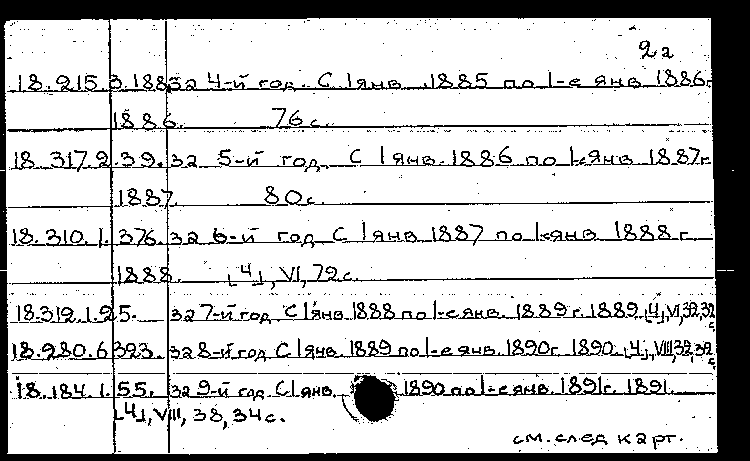 2а
18.215.3.188 за 4-й год. С 1 янв. 1885 по 1-е янв. 1886г.
1886. 76 с.
18.317.2.39. за 5-й год. С 1 янв. 1886 по 1-е янв. 1887г.
1887. 80с.
18.310.1.376. за 6-й год С 1 янв. 1887 по 1-е янв. 1888 г.
1888. [4], VI, 72 с.
18.319.1.25. за 7-й год С 1 янв. 1888 по 1-е янв. 1889 г. 1889. [4], VI, 32, 32 с.
18.280.6.323. за 8-й год С 1 янв. 1889 по 1-е янв. 1890г. 1890. [4], VIII, 32, 32 с.
18.184.1.55. за 9-й год С 1 янв. 1890 по 1-е янв. 1891г. 1891.
[4], VIII, 38, 34 с.
см. след карт.